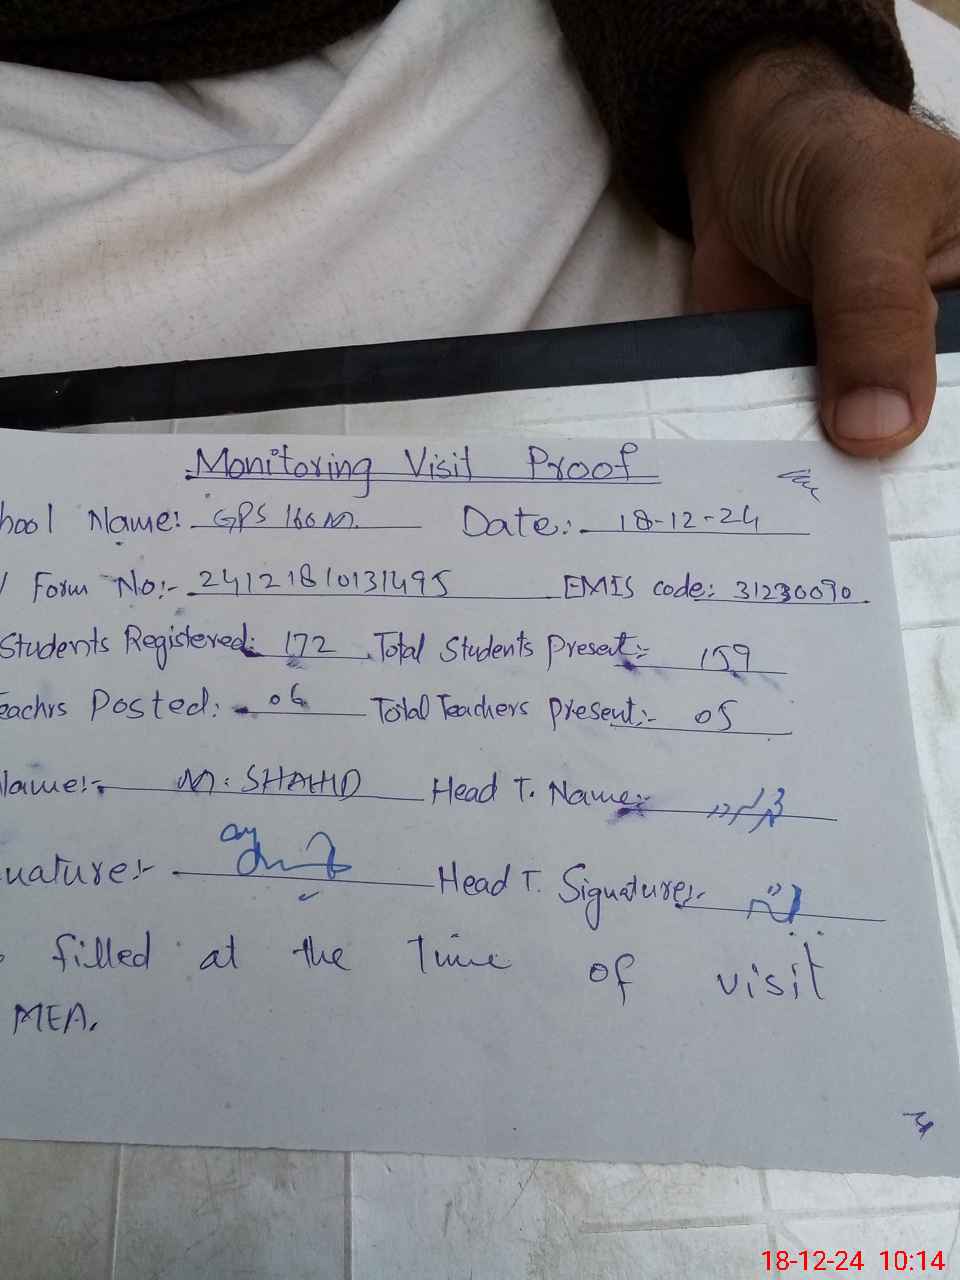 Monitoring Visit Proof
hool Name: GPS 166 M. Date: 18-12-24
Form No:- 24121810131495 EMIS code: 31230090
Students Registered: 172 Total Students Present:- 159
eachrs Posted: 06 Total Teachers Present:- 05
Name:- M. SHAHID Head T. Name:-
nature:- Head T. Signature:-
filled at the time of visit
MEA.
18-12-24 10:14